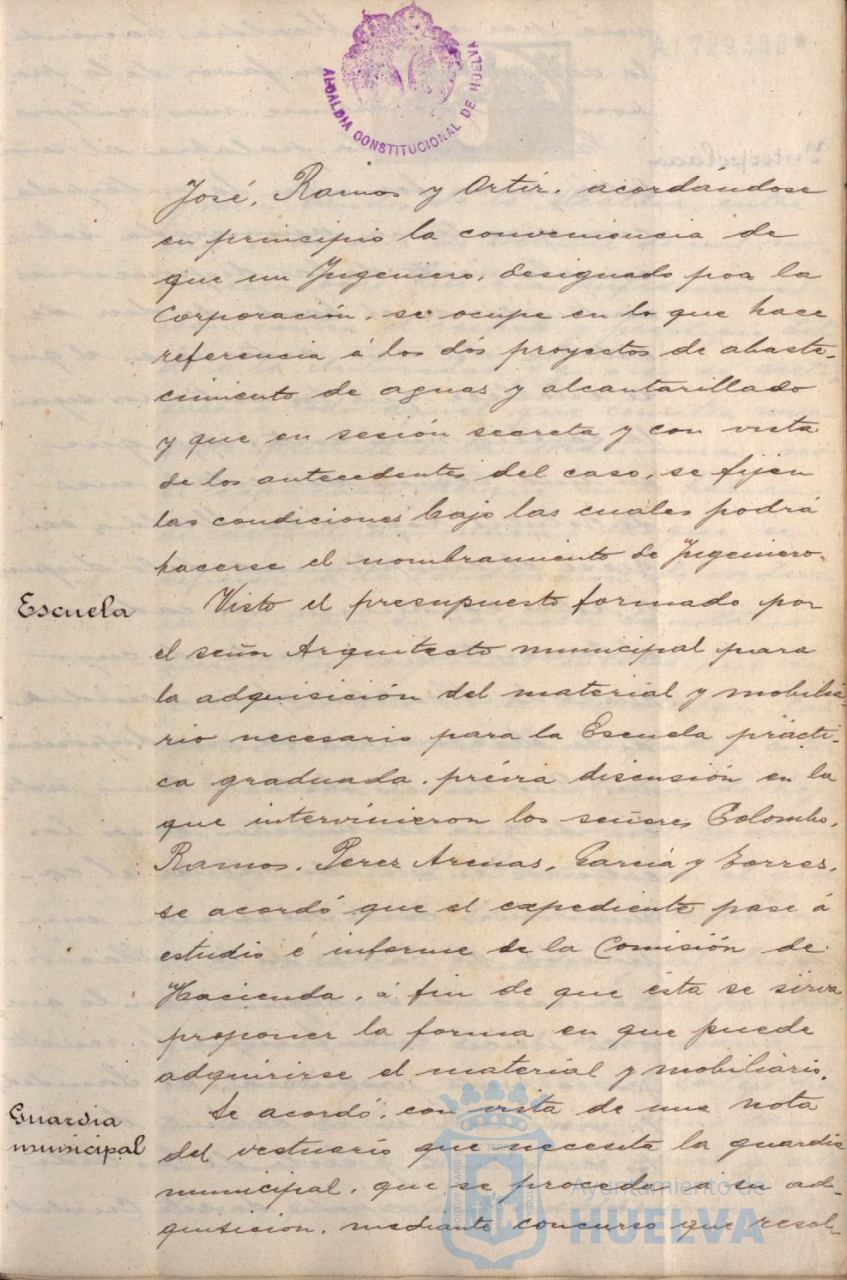 ALCALDIA CONSTITUCIONAL DE HUELVA
A1729388*
José, Ramos y Ortiz, acordándose
en principio la conveniencia de
que un Ingeniero, designado por la
Corporación, se ocupe en lo que hace
referencia á los dós proyectos de abaste-
cimiento de aguas y alcantarillado
y que en sesión secreta y con vista
de los antecedentes del caso, se fijen
las condiciones bajo las cuales podrá
hacerse el nombramiento de Ingeniero.
Escuela
Visto el presupuesto formado por
el señor Arquitecto municipal para
la adquisición del material y mobilia-
rio necesario para la Escuela prácti-
ca graduada, prévia discusión en la
que intervinieron los señores Colombo,
Ramos, Perez Arenas, García y Torres,
se acordó que el expediente pase á
estudio é informe de la Comisión de
Hacienda, á fin de que ésta se sirva
proponer la forma en que puede
adquirirse el material y mobiliario.
Guardia
municipal
Se acordó, con vista de una nota
del vestuario que necesita la guardia
municipal, que se proceda a su ad-
quisicion, mediante concurso que resol-
Ayuntamiento de
HUELVA